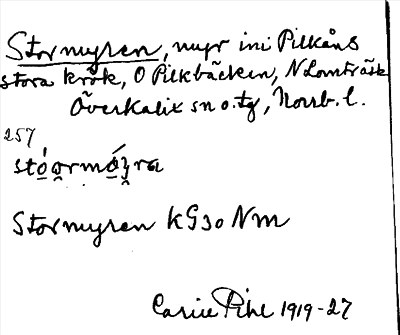 Stormyren, myr ini Pilkåns
stora krok, O Pilkbäcken, N Lomträsk
Överkalix sn o. tg, Norrb. l.
257
stó̱o̯rmó̱y̯ra
Stormyren KG30Nm
Carin Pihl 1919-27